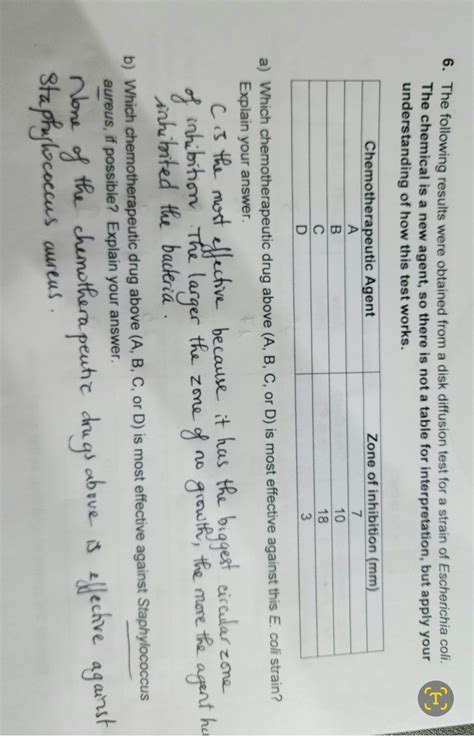 6. The following results were obtained from a disk diffusion test for a strain of Escherichia coli.
The chemical is a new agent, so there is not a table for interpretation, but apply your
understanding of how this test works.
Chemotherapeutic Agent Zone of inhibition (mm)
A 7
B 10
C 18
D 3
a) Which chemotherapeutic drug above (A, B, C, or D) is most effective against this E. coli strain?
Explain your answer.
C is the most effective because it has the biggest circular zone
of inhibition. The larger the zone of no growth, the more the agent ha
inhibited the bacteria.
b) Which chemotherapeutic drug above (A, B, C, or D) is most effective against Staphylococcus
aureus, if possible? Explain your answer.
None of the chemotherapeutic drugs above is effective against
Staphylococcus aureus.